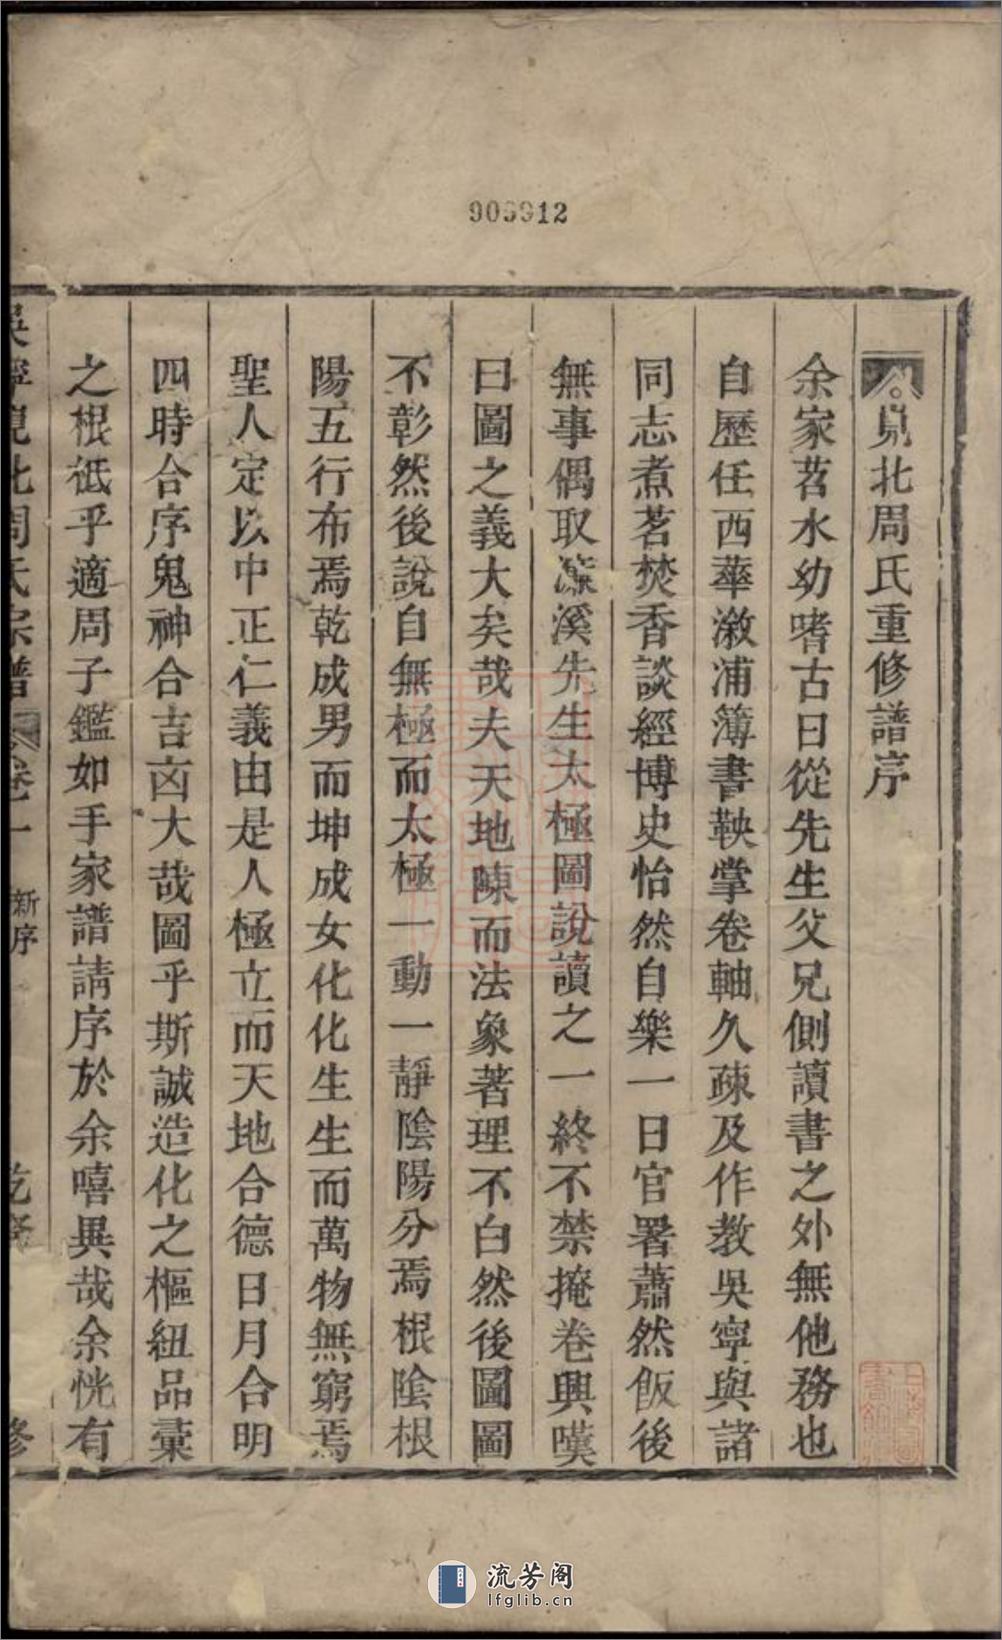 909912
峴北周氏重修譜序
余家苕水幼嗜古日從先生父兄側讀書之外無他務也
自歷任西華漵浦簿書鞅掌卷軸久疎及作教吳寧與諸
同志煮茗焚香談經博史怡然自樂一日官署蕭然飯後
無事偶取濂溪先生太極圖說讀之一終不禁掩卷興嘆
曰圖之義大矣哉夫天地陳而法象著理不白然後圖圖
不彰然後說自無極而太極一動一靜陰陽分焉根陰根
陽五行布焉乾成男而坤成女化化生生而萬物無窮焉
聖人定以中正仁義由是人極立而天地合德日月合明
四時合序鬼神合吉凶大哉圖乎斯誠造化之樞紐品彙
之根祗乎適周子鑑如手家譜請序於余嘻異哉余恍有
吳寧峴北周氏宗譜 卷一 新序 乾隆 修
流芳阁
lfglib.cn